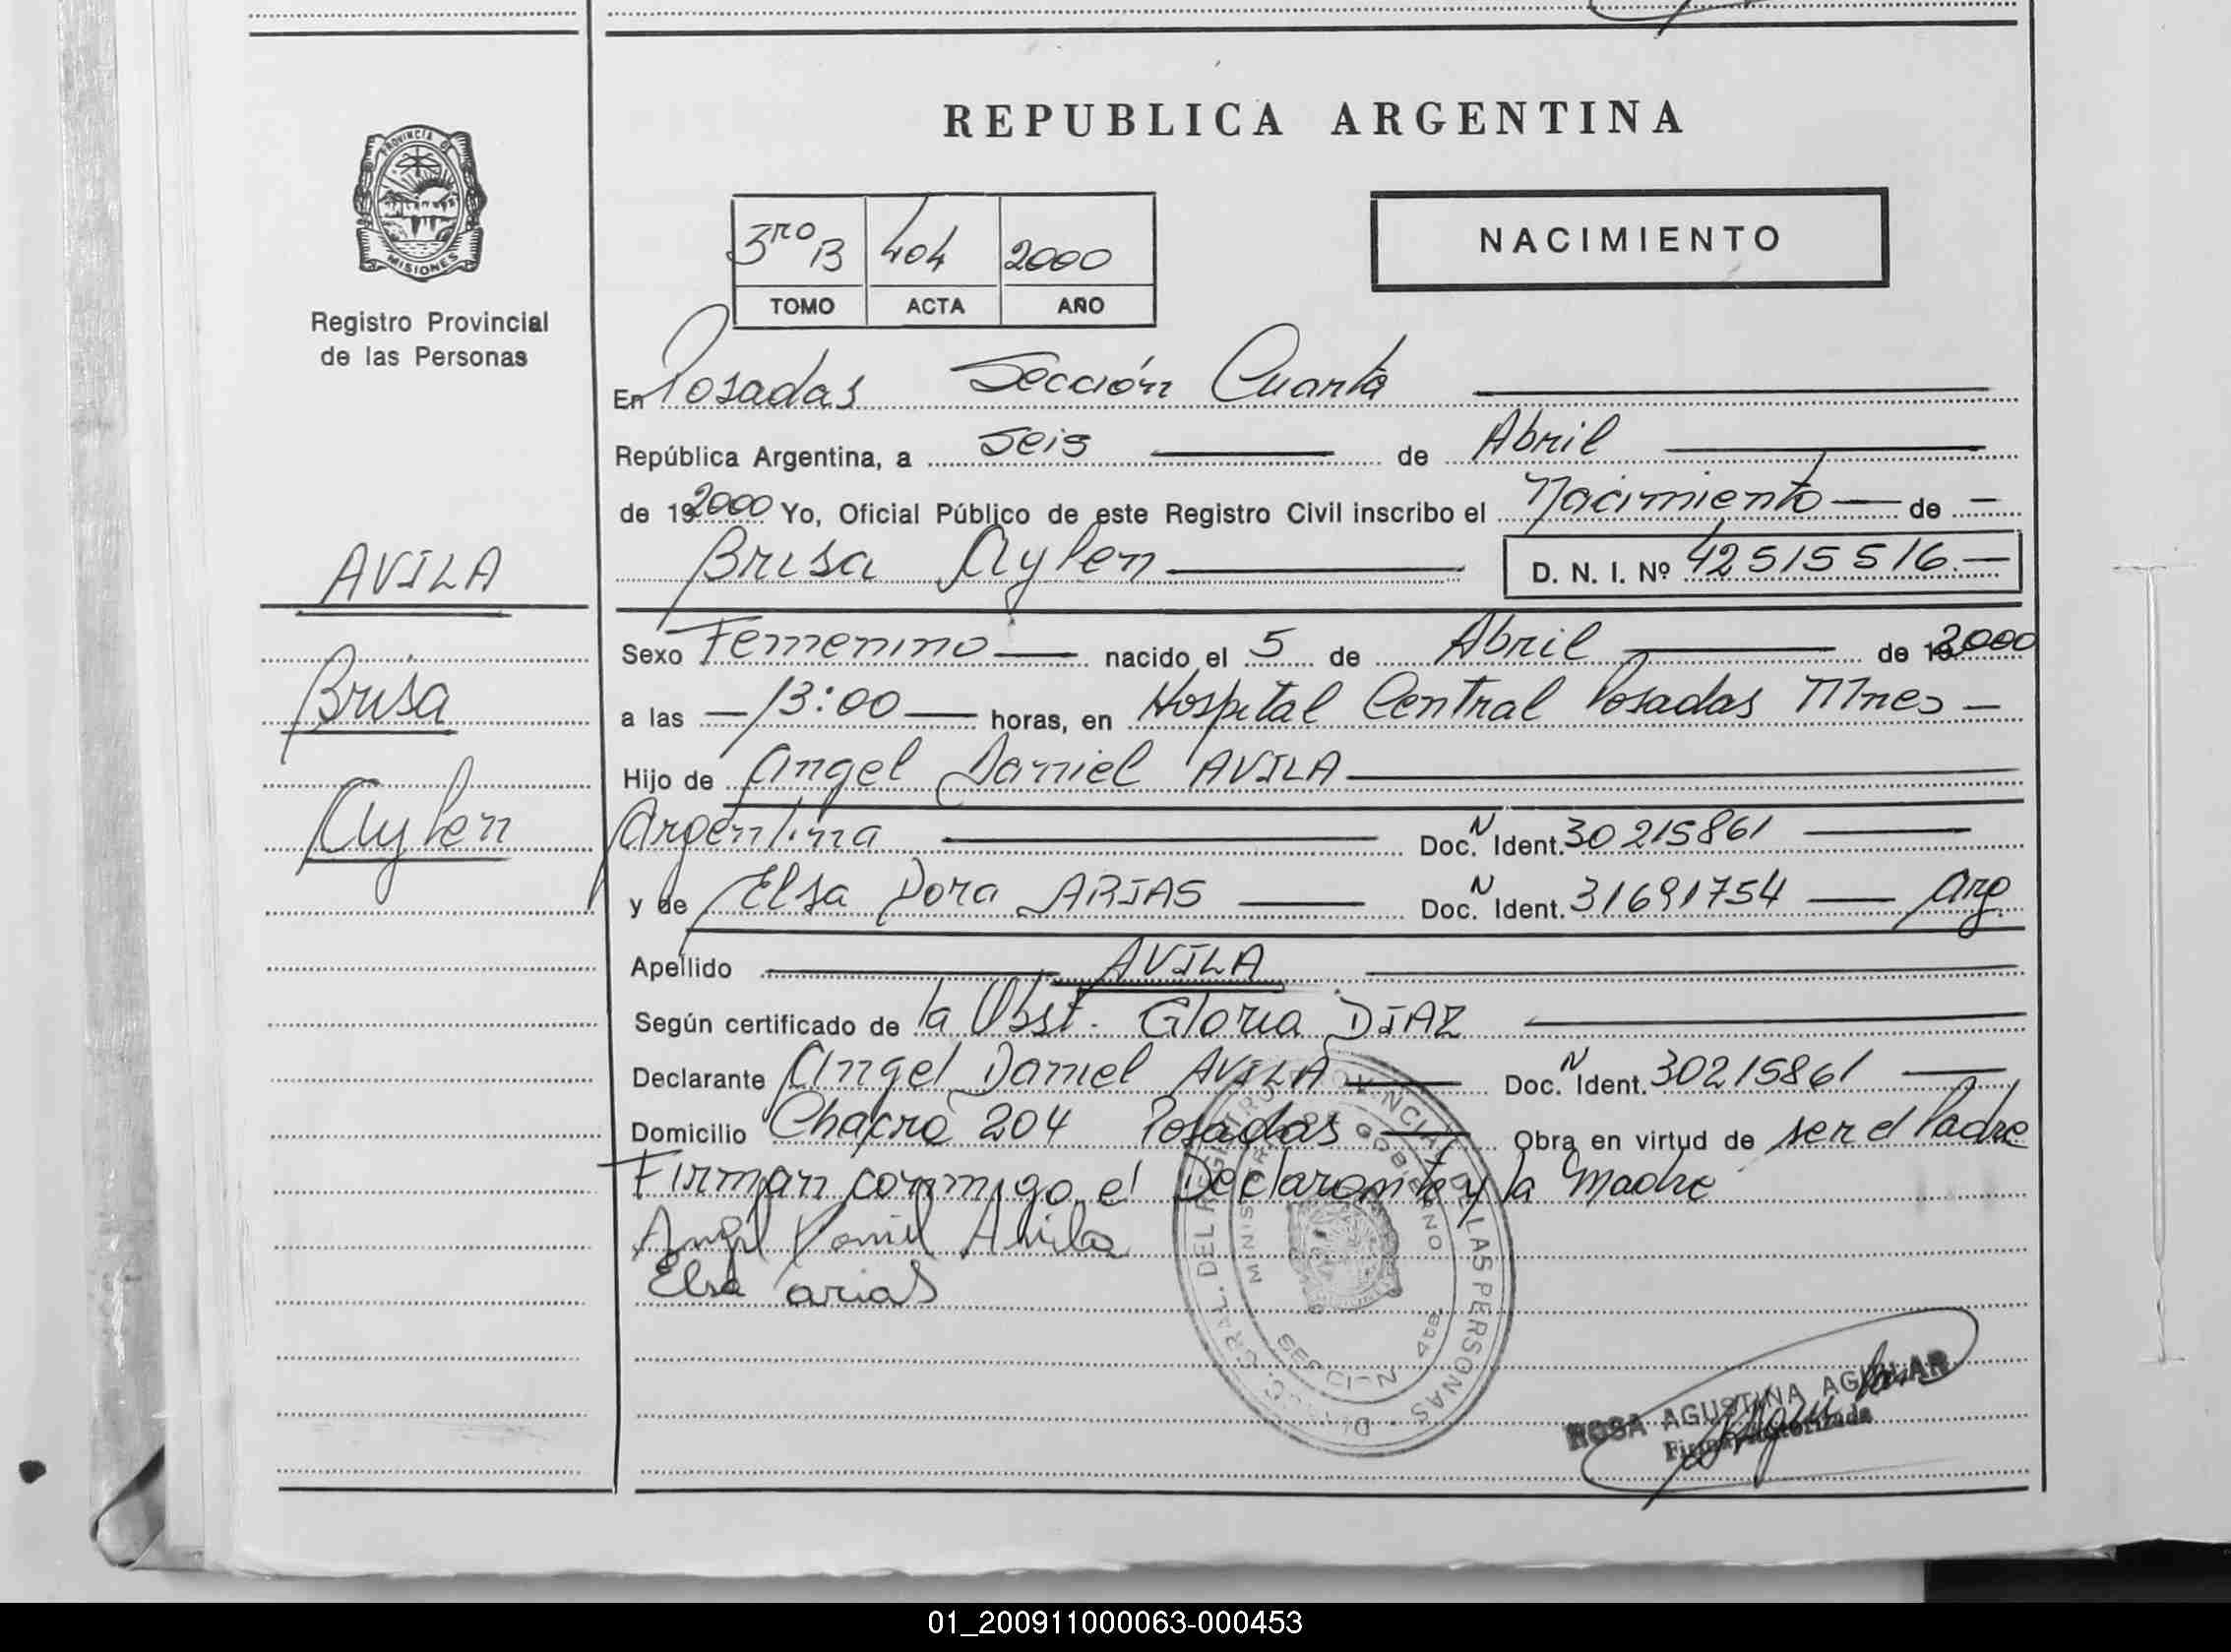 REPUBLICA ARGENTINA
PROVINCIA DE
MISIONES
Registro Provincial
de las Personas
3ro B 404 2000
TOMO ACTA AÑO
NACIMIENTO
En Posadas Sección Cuarta
República Argentina, a Seis de Abril
de 192000 Yo, Oficial Público de este Registro Civil inscribo el Nacimiento de
Brisa Aylen D. N. I. Nº 42515516.
AVILA
Brisa
Aylen
Sexo Femenino nacido el 5 de Abril de 192000
a las 13:00 horas, en Hospital Central Posadas Mnes
Hijo de Angel Daniel AVILA
Argentina Doc. N Ident. 30215861
y de Elsa Dora ARIAS Doc. N Ident. 31691754 Arg.
Apellido AVILA
Según certificado de la Obst. Gloria DIAZ
Declarante Angel Daniel AVILA Doc. N Ident. 30215861
Domicilio Chacra 204 Posadas Obra en virtud de ser el Padre
Firman conmigo el Declarante y la Madre
Angel Daniel Avila
Elsa arias
DEL REGISTRO PROVINCIAL DE LAS PERSONAS
GOBIERNO
4ta.
ROSA AGUSTINA AGUILAR
Firma Autorizada
01_200911000063-000453